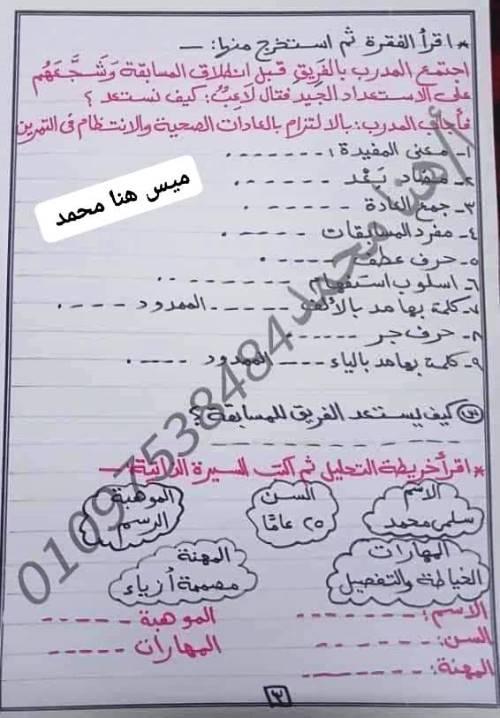 * اقرأ الفقرة ثم استخرج منها: ـ
اجتمع المدرب بالفَرِيقِ قبل انطلاق المسابقة وَشَجَّعَهُم
على الاستعداد الجَيِّد فقال لَاعِبٌ: كيف نستعد ؟
فأجاب المدرب: بالالتزام بالعادات الصحية والانتظام فى التمرين
١- معنى المفيدة : ـ ـ ـ ـ ـ ـ .
٢- مضاد بَعْد ـ ـ ـ ـ ـ .
٣- جمع العادة ـ ـ ـ ـ ـ .
٤- مفرد المسابقات ـ ـ ـ ـ .
٥- حرف عطف ـ ـ ـ ـ .
٦- اسلوب استفهام ـ ـ ـ ـ ـ . .
٧- كلمة بها مد بالألف ـ ـ ـ ـ الممدود ـ ـ ـ ـ .
٨- حرف جر ـ ـ ـ ـ ـ
٩- كلمة بها مد بالياء ـ ـ ـ ـ الممدود ـ ـ ـ .
س كيف يستعد الفريق للمسابقة ؟
* اقرأ خريطة التحليل ثم اكتب السيرة الذاتية ـ
الاسم
سلمى محمد
السن
٢٥ عامًا
الموهبة
الرسم
المهارات
الخياطة والتفصيل
المهنة
مصممة أزياء
الاسم : ـ ـ ـ ـ ـ ـ الموهبة ـ ـ ـ ـ ـ
السن: ـ ـ ـ ـ ـ المهارات ـ ـ ـ ـ ـ
المهنة: ـ ـ ـ ـ ـ
٣
ميس هنا محمد
أ/هنا محمد 01097538484